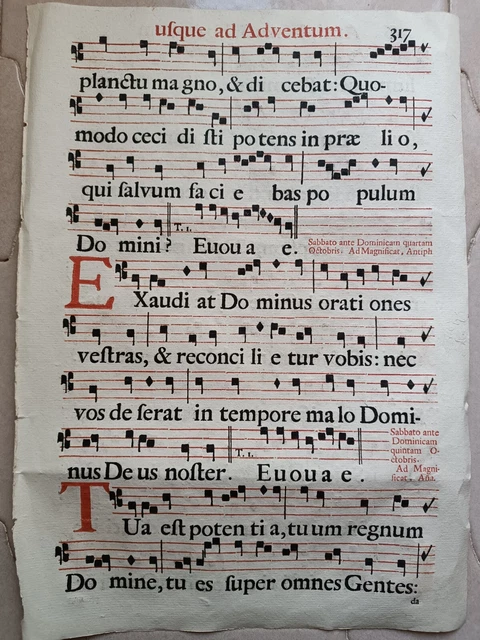 uſque ad Adventum. 317
planctu ma gno, & di cebat: Quo-
modo ceci di ſti po tens in præ li o,
qui ſalvum fa ci e bas po pulum
T. 1.
Do mini? Euou a e. Sabbato ante Dominicam quartam
Octobris. Ad Magnificat, Antiph
EXaudi at Do minus orati ones
veſtras, & reconci li e tur vobis: nec
vos de ſerat in tempore ma lo Domi-
T. 1.
Sabbato ante
Dominicam
quintam O-
ctobris.
Ad Magni-
ficat, Aña.
nus De us noſter. Euou a e.
TUa eſt poten ti a, tu um regnum
Do mine, tu es ſuper omnes Gentes:
da